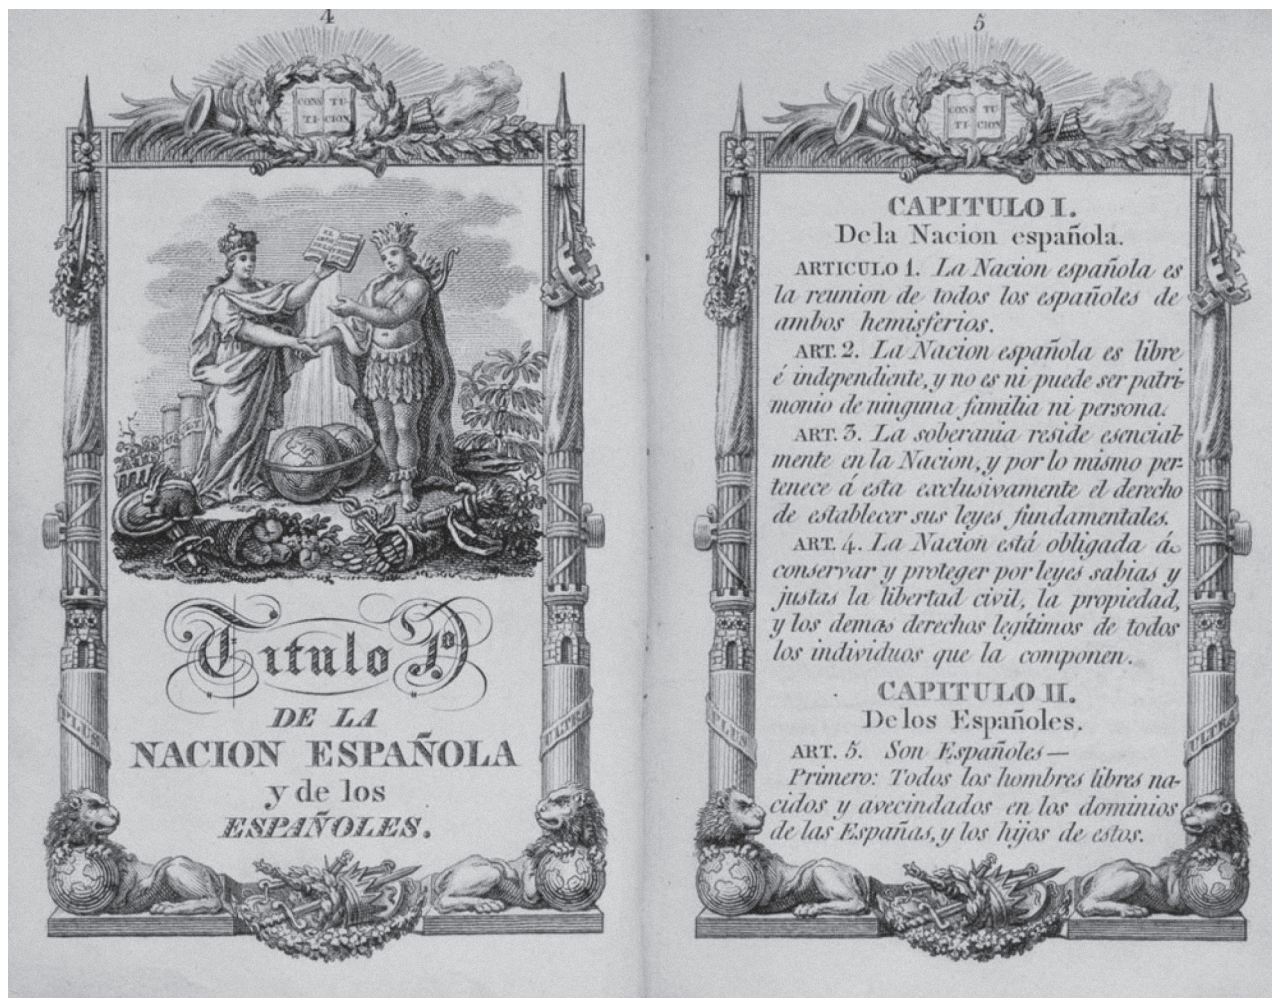 4
CONS TU-
TI- CION
Titulo Iº
DE LA
NACION ESPAÑOLA
y de los
ESPAÑOLES.
PLUS
ULTRA
5
CONS TU-
TI- CION
CAPITULO I.
De la Nacion española.
ARTICULO 1. La Nacion española es
la reunion de todos los españoles de
ambos hemisferios.
ART. 2. La Nacion española es libre
é independiente, y no es ni puede ser patri-
monio de ninguna familia ni persona.
ART. 3. La soberania reside esencial-
mente en la Nacion, y por lo mismo per-
tenece á esta exclusivamente el derecho
de establecer sus leyes fundamentales.
ART. 4. La Nacion está obligada á
conservar y proteger por leyes sabias y
justas la libertad civil, la propiedad,
y los demas derechos legítimos de todos
los individuos que la componen.
CAPITULO II.
De los Españoles.
ART. 5. Son Españoles—
Primero: Todos los hombres libres na-
cidos y avecindados en los dominios
de las Españas, y los hijos de estos.
PLUS
ULTRA